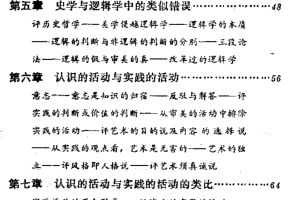 第五章 史学与逻辑学中的类似错误……………48
评历史哲学——美学侵越逻辑学——逻辑学的本质
——逻辑的判断与非逻辑的判断的分别——三段论
法——逻辑的假与审美的真——改革过的逻辑学
第六章 认识的活动与实践的活动……………56
意志——意志是知识的归宿——反驳与解答——评
实践的判断或价值的判断——从审美的活动中排除
实践的活动——评艺术的目的说及内容的选择说
——从实践的观点看，艺术是无害的——艺术的独
立——评风格即人格说——评艺术须真诚说
第七章 认识的活动与实践的活动的类比………64